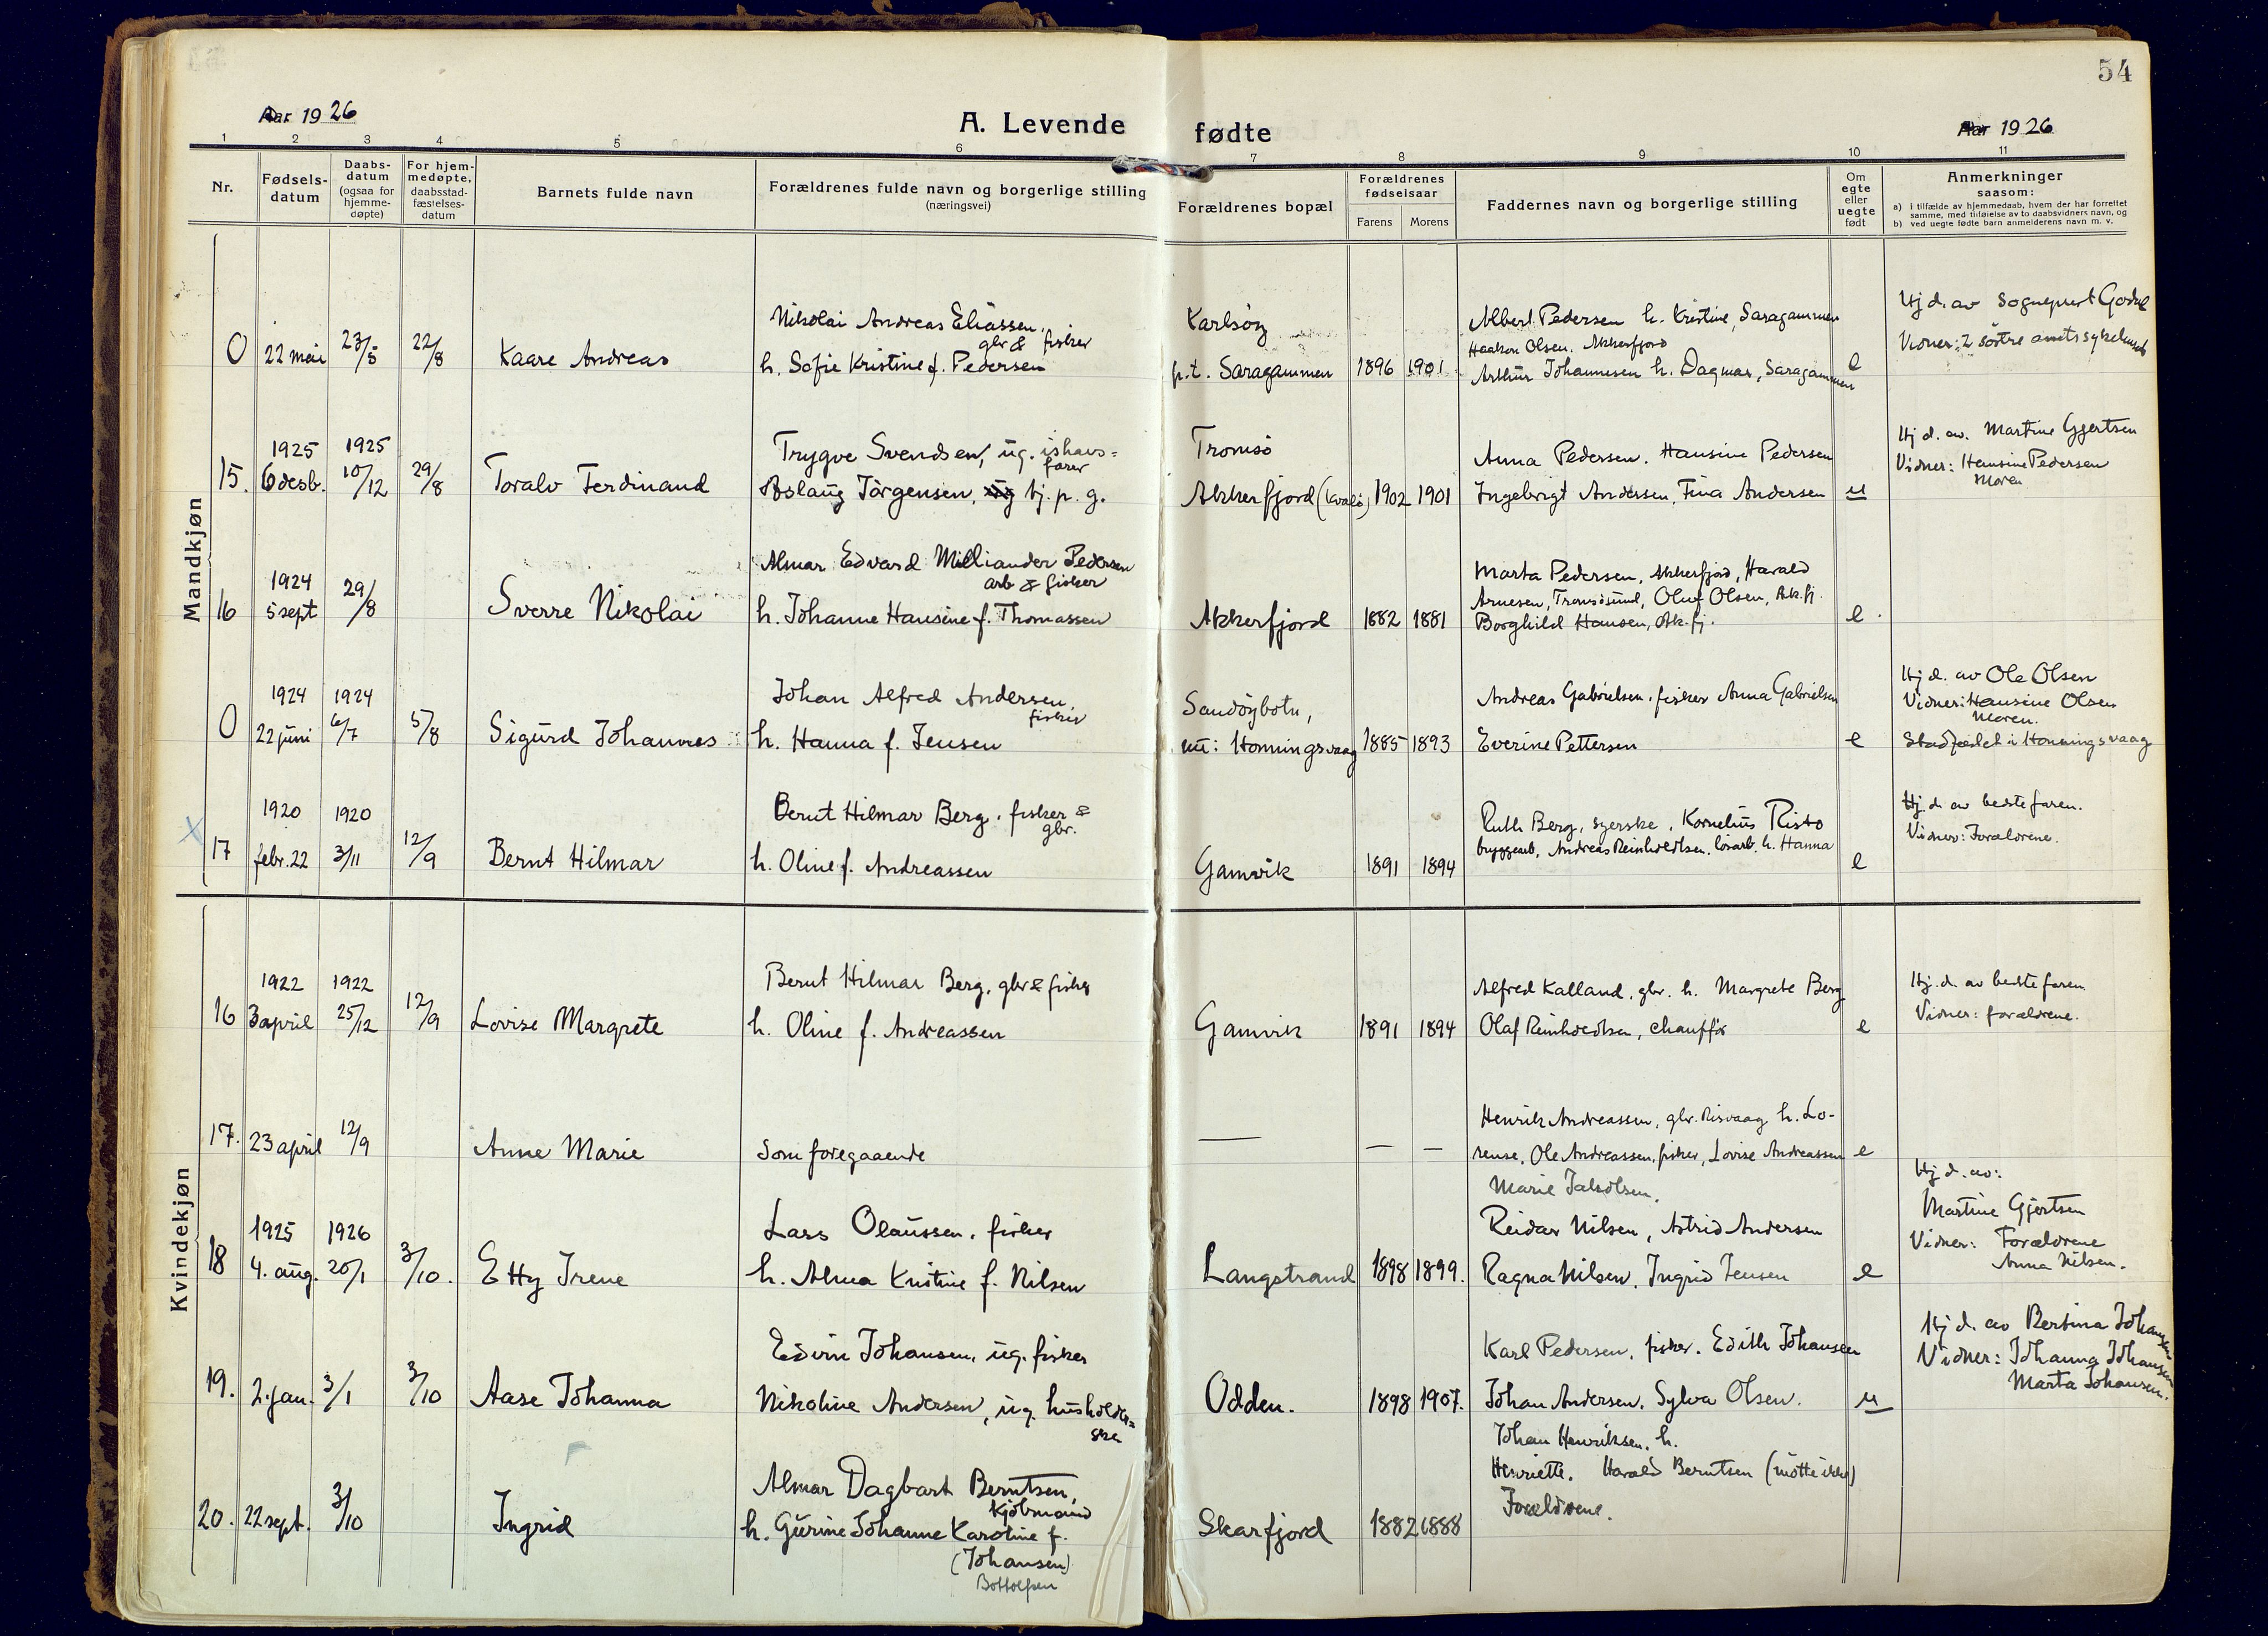 54
Aar 1926
A. Levende fødte
Aar 1926
1 2 3 4 5 6 7 8 9 10 11
Nr.
Fødsels-
datum
Daabs-
datum
(ogsaa for
hjemme-
døpte)
For hjem-
medøpte,
daabsstad-
fæstelses-
datum
Barnets fulde navn
Forældrenes fulde navn og borgerlige stilling
(næringsvei)
Forældrenes bopæl
Forældrenes
fødselsaar
Farens Morens
Faddernes navn og borgerlige stilling
Om
egte
eller
uegte
født
Anmerkninger
saasom:
a) i tilfælde av hjemmedaab, hvem der har forrettet
samme, med tilføielse av to daabsvidners navn, og
b) ved uegte fødte barn anmelderens navn m. v.
Mandkjøn
0 22 mai 23/5 22/8 Kaare Andreas
Nikolai Andreas Eliassen,
gbr & fisker
h. Sofie Kristine f. Pedersen
Karlsöy
p.t. Saragammen 1896 1901
Albert Pedersen h. Kristine, Saragammen
Haakon Olsen, Akkerfjord
Arthur Johannesen h. Dagmar, Saragammen
e
Hj d. av sogneprest
Vidner: 2 söstre amtssykehuset
15. 1925 6 desb. 1925 10/12 29/8 Toralv Ferdinand
Trygve Svendsen, ug. ishavs=
farer
Aslaug Jörgensen, ug tj. p. g.
Tromsö
Akkerfjord (Kvalö) 1902 1901
Anna Pedersen. Hansine Pedersen
Ingebrigt Andersen, Fina Andersen
u
Hj d. av. Martine Gjertsen
Vidner: Hansine Pedersen
Moren
16 1924 5 sept 29/8 Sverre Nikolai
Almar Edvard Milliander Pedersen
arb & fisker
h. Johanne Hansine f. Thomassen
Akkerfjord 1882 1881
Marta Pedersen, Akkerfjord, Harald
Arnesen, Tromsösund, Oluf Olsen, Ak.fj.
Borghild Hansen, Ak.fj.
e
0 1924 22 juni 1924 6/7 5/8 Sigurd Johannes
Johan Alfred Andersen,
fisker
h. Hanna f. Jensen
Sandöybotn,
nu: Honningsvaag 1885 1893
Andreas Gabrielsen, fisker Anna Gabrielsen
Everine Pettersen
e
Hj d. av Ole Olsen
Vidner: Hansine Olsen
Moren.
Stadfestet i Honningsvaag
17 1920 febr. 22 1920 3/11 12/9 Bernt Hilmar
Bernt Hilmar Berg, fisker &
gbr.
h. Oline f. Andreassen
Gamvik 1891 1894
Ruth Berg, syerske, Kornelius Risto
bryggearb, Andreas Reinholdtsen, h. Hanna
e
Hj. d. av bestefaren.
Vidner: Forældrene.
Kvindekjøn
16 1922 3 april 1922 25/12 12/9 Lovise Margrete
Bernt Hilmar Berg, gbr & fisker
h. Oline f. Andreassen
Gamvik 1891 1894
Alfred Kalland, gbr. h. Margrete Berg
Olaf Reinholdtsen, chaufför
e
Hj. d. av bedstefaren
Vidner: forældrene.
17. 23 april 12/9 Anne Marie
Som foregaaende
— — —
Henrik Andreassen, gbr. Risvaag h. Lo-
rense, Ole Andreassen, fisker, Lovise Andreassen
Marie
e
18 1925 4. aug. 1926 20/1 3/10. Etty Irene
Lars Olaussen, fisker
h. Alma Kristine f. Nilsen
Langstrand 1898 1899.
Reidar Nilsen, Astrid Andersen
Ragna Nilsen, Ingrid Jensen
e
Hj d. av:
Martine Gjertsen
Vidner: Forældrene
Anna Nilsen.
19. 2. jan. 3/1 3/10 Aase Johanna
Edvin Johansen, ug. fisker
Nikoline Andersen, ug. husholder=
ske
Odden. 1898 1907.
Karl Pedersen, fisker. Edith Johansen
Johan Andersen, Sylva Olsen.
u
Hj d. av Bertina Johansen
Vidner: Johanna Johansen
Marta Johansen.
20. 22 sept. 3/10 Ingrid
Almar Dagbart Berntsen,
Kjöbmand
h. Gurine Johanne Karoline f.
(Johansen)
Bottolfsen
Skarfjord 1882 1888
Johan Henriksen, h.
Henriette. Harald Berntsen (mötte ikke)
Forældrene.